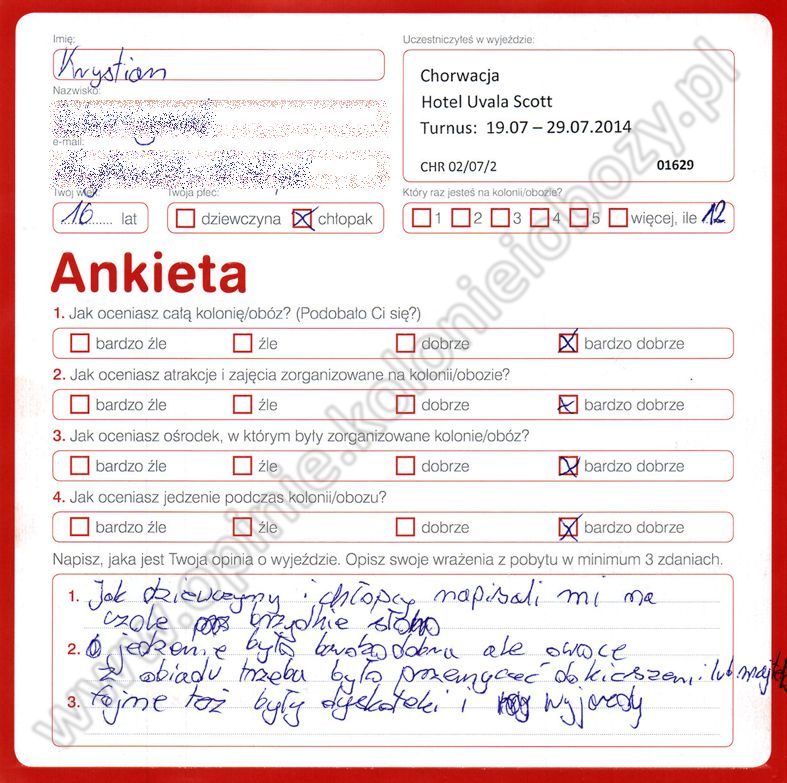 Imię:
Krystian
Uczestniczyłeś w wyjeździe:
Chorwacja
Hotel Uvala Scott
Turnus: 19.07 – 29.07.2014
CHR 02/07/2 01629
Nazwisko:
e-mail:
Twój wiek:
16 lat
Twoja płeć:
dziewczyna chłopak
Który raz jesteś na kolonii/obozie?
1 2 3 4 5 więcej, ile 12
Ankieta
1. Jak oceniasz całą kolonię/obóz? (Podobało Ci się?)
bardzo źle źle dobrze bardzo dobrze
2. Jak oceniasz atrakcje i zajęcia zorganizowane na kolonii/obozie?
bardzo źle źle dobrze bardzo dobrze
3. Jak oceniasz ośrodek, w którym były zorganizowane kolonie/obóz?
bardzo źle źle dobrze bardzo dobrze
4. Jak oceniasz jedzenie podczas kolonii/obozu?
bardzo źle źle dobrze bardzo dobrze
Napisz, jaka jest Twoja opinia o wyjeździe. Opisz swoje wrażenia z pobytu w minimum 3 zdaniach.
1. Jak dziewczyny i chłopcy napisali mi na
czole brzydkie słowo
2. jedzenie było bardzo dobre ale owoce
z obiadu trzeba było przemycać do kieszeni lub
3. fajne też były dyskoteki i wyjazdy
www.opinie.kolonieiobozy.pl